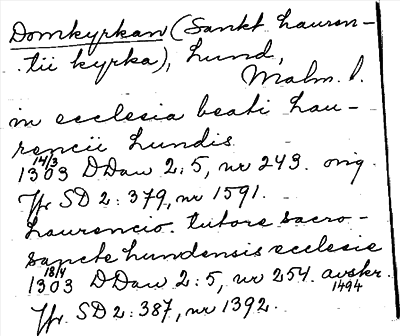 Domkyrkan (Sankt Lauren-
tii kyrka), Lund,
Malm. l.
in ecclesia beati Lau-
rencii Lundis
1303 14/3 DDan 2:5, nr 243. orig.
Jfr SD 2:379, nr 1591.
Laurencio. tutore sacro-
sancte Lundensis ecclesie
1303 18/4 DDan 2:5, nr 254. avskr. 1494
Jfr SD 2:387, nr 1392.